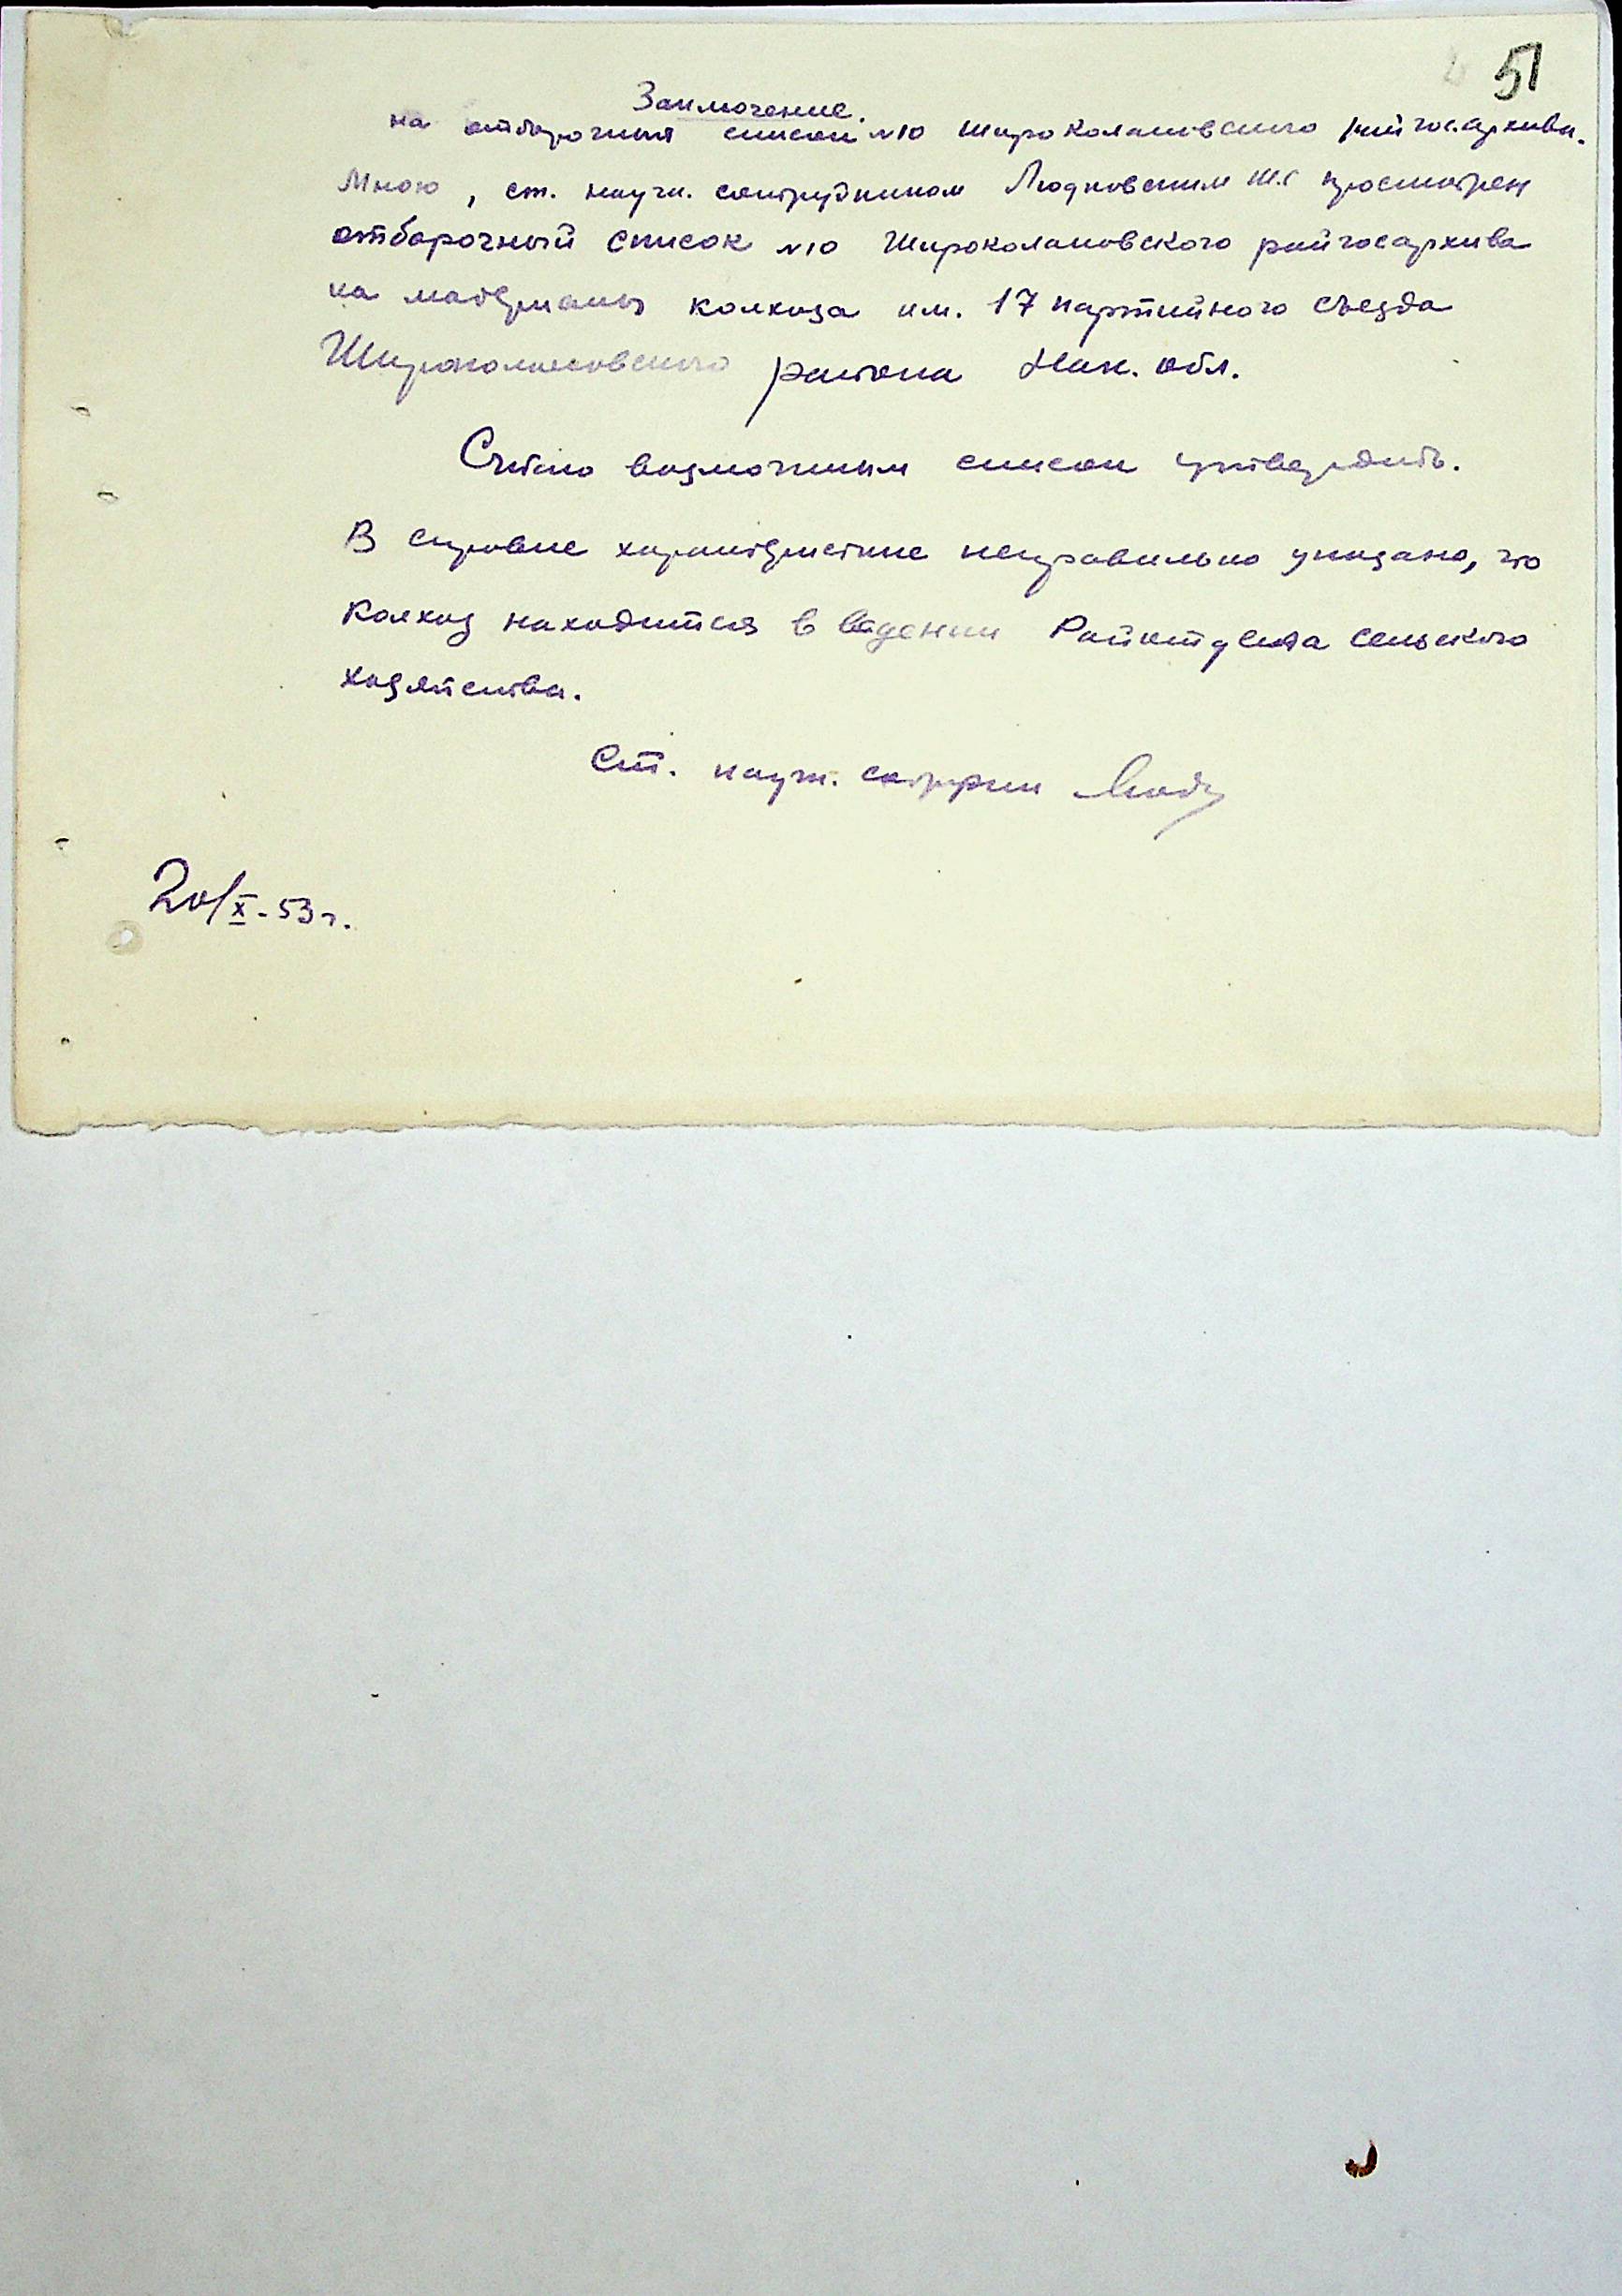 51
Заключение.
на отборочный список №10 Широколановского райгосархива.
Мною, ст. научн. сотрудником Людковским Ш.С. просмотрен
отборочный список №10 Широколановского райгосархива
на материалы колхоза им. 17 партийного съезда
Широколановского района Ник. обл.
Считаю возможным список утвердить.
В справке характеристике неправильно указано, что
колхоз находится в ведении Райотдела сельского
хозяйства.
Ст. научн. сотрудник
20/X-53 г.